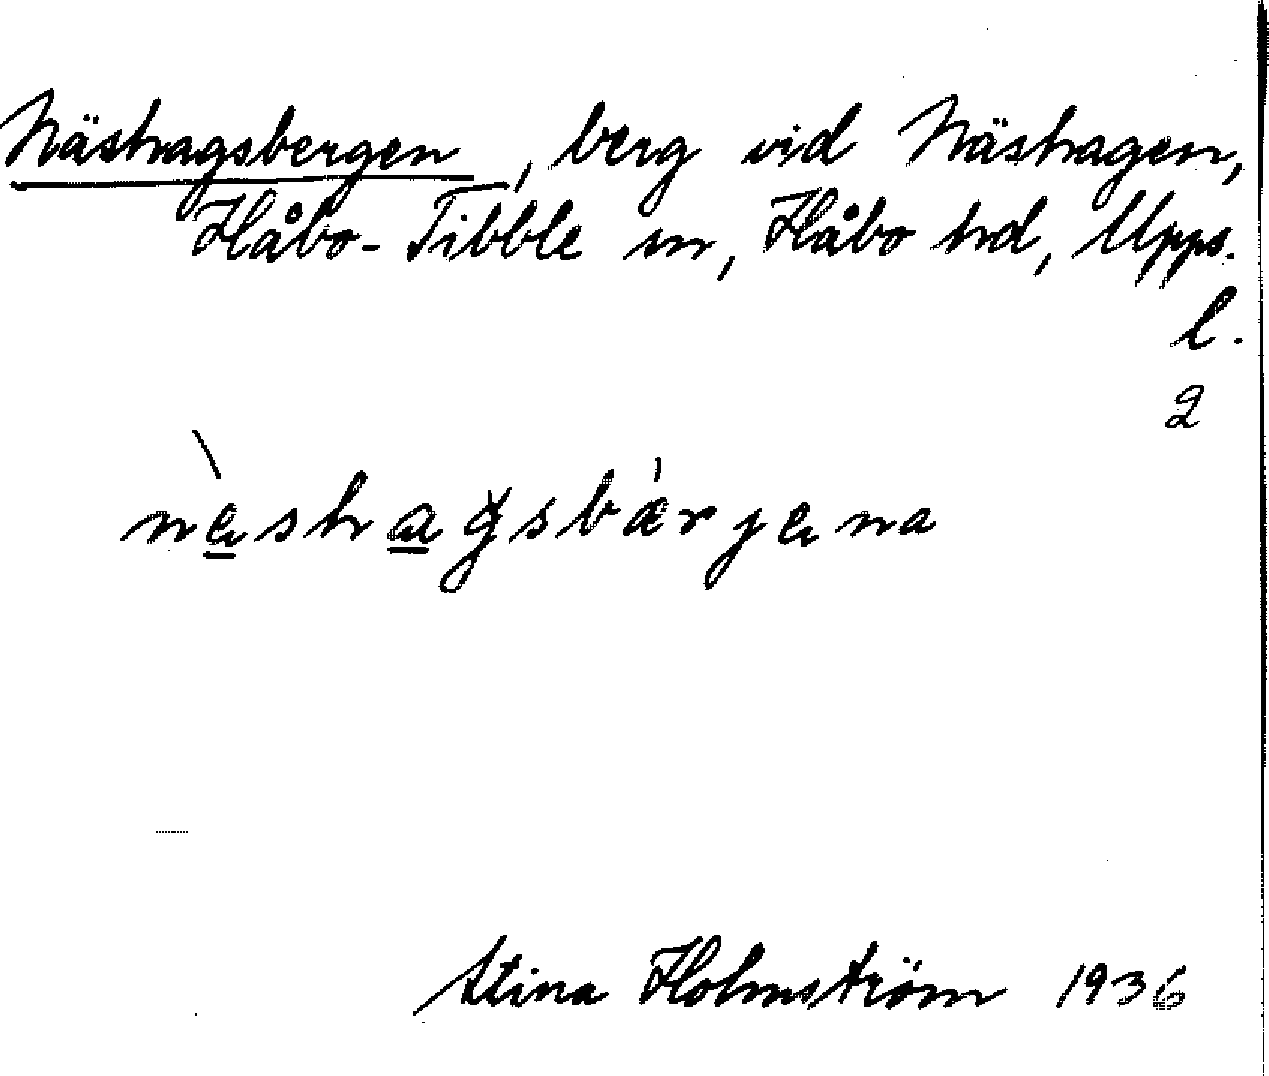 Näshagsbergen, berg vid Näshagen,
Håbo-Tibble sn, Håbo hd, Upps.
l.
2
nèshagsbárjena
Stina Holmström 1936